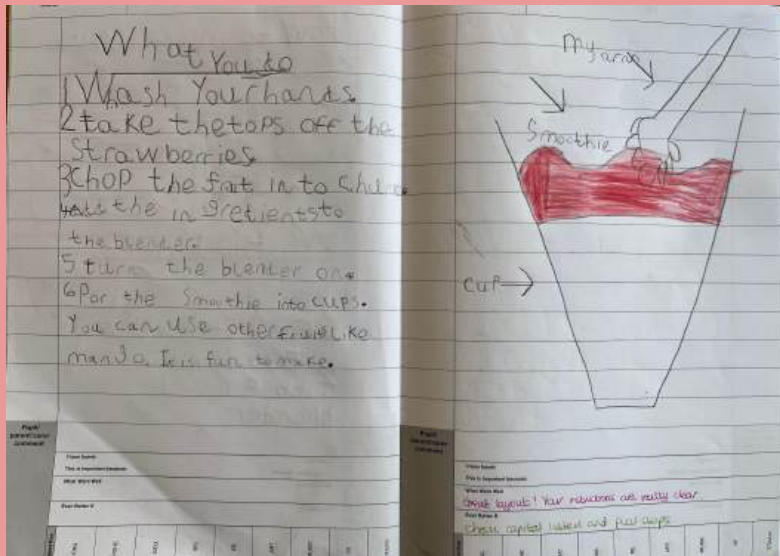 What You to
1 Wash Your hands.
2 take the tops off the
Strawberries.
3 Chop the fruit in to
the ingretients to
the blenter.
5 turn the blenter on.
6 Por the Smoothie into cups.
You can use other fruis like
mango. It is fun to make.
Pupil/
parent/carer
comment
This is important because
What Went Well
Even Better If
my arm
Smoothie
cup
Pupil/
parent/carer
comment
This is important because
What Went Well
Great layout! Your instructions are really clear.
Even Better If
Check capital letters and full stops